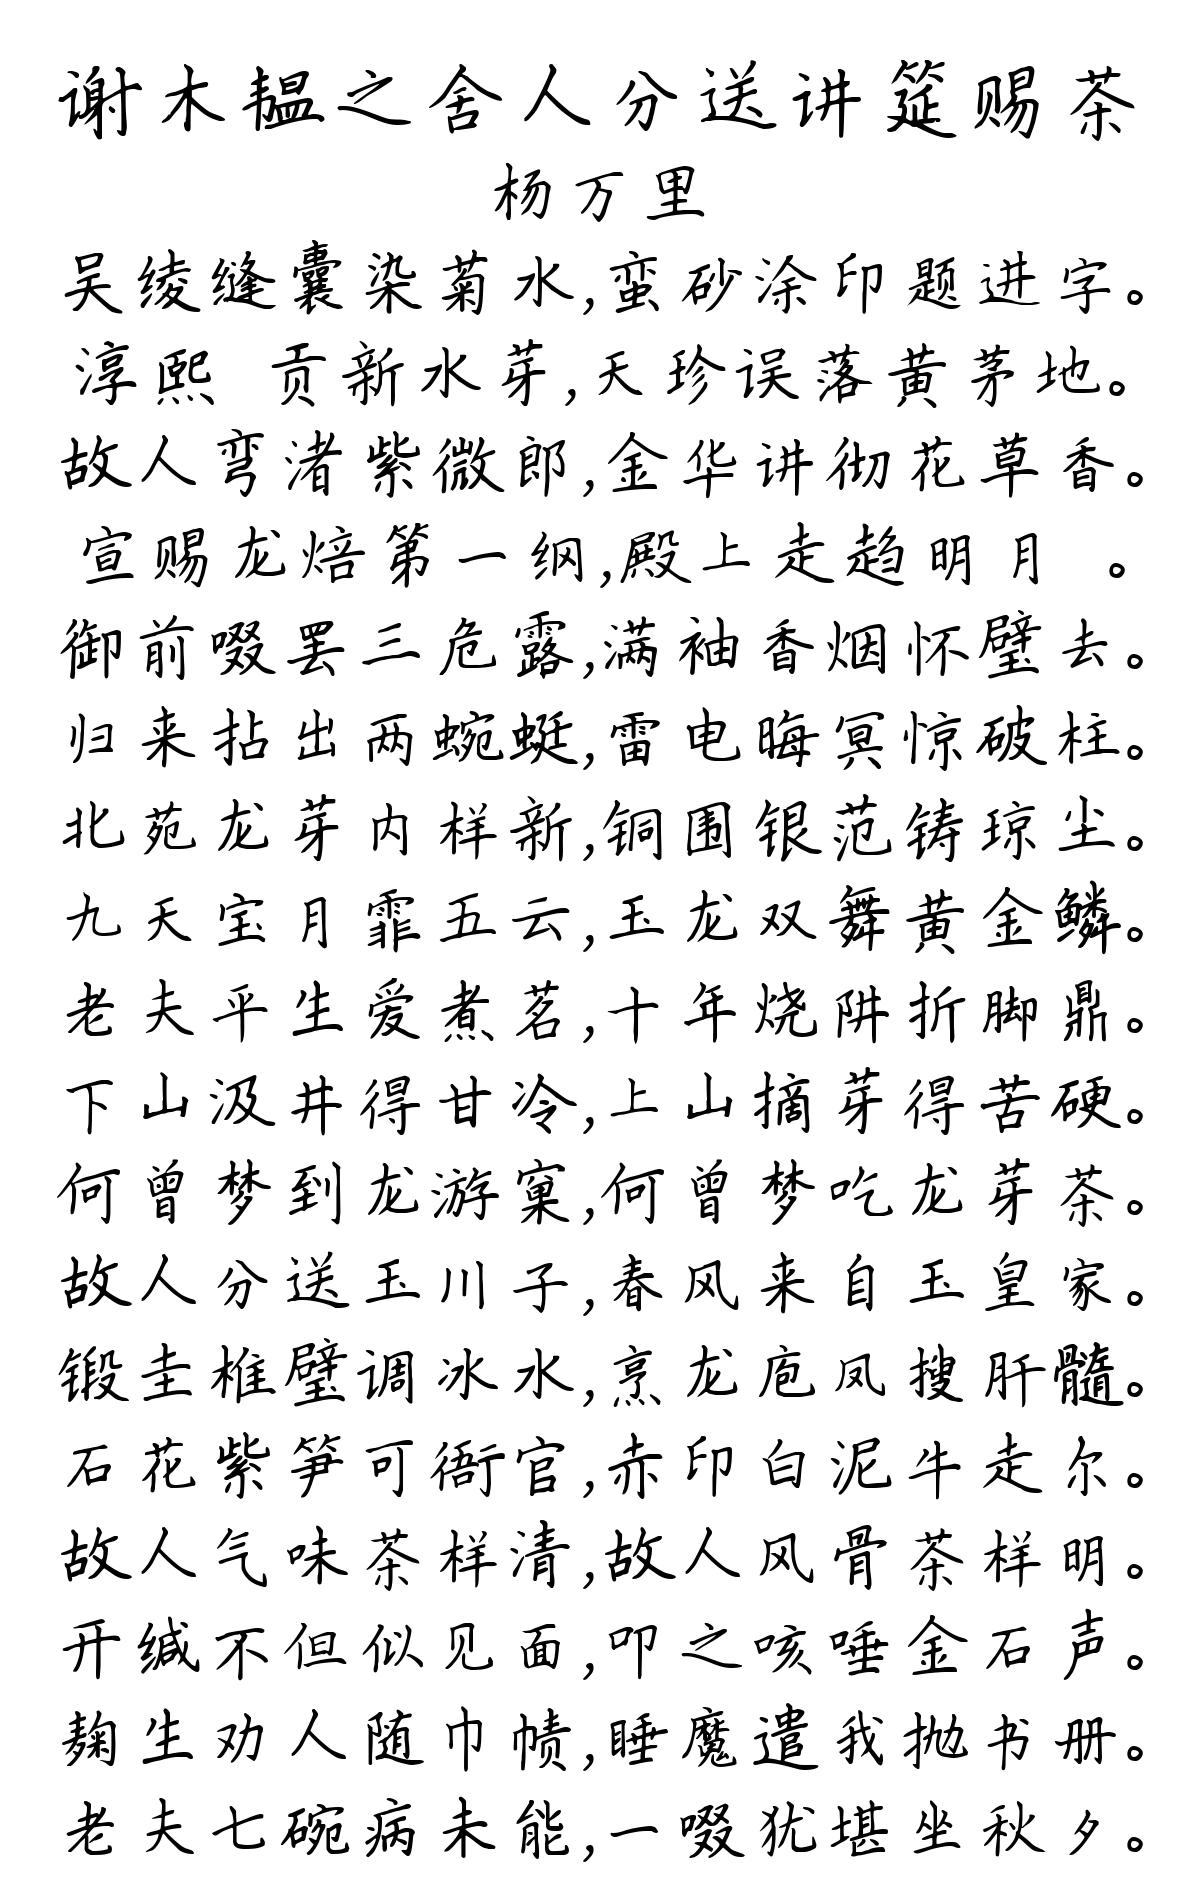 谢木韫之舍人分送讲筵赐茶
杨万里
吴绫缝囊染菊水,蛮砂涂印题进字。
淳熙 贡新水芽,天珍误落黄茅地。
故人弯渚紫微郎,金华讲彻花草香。
宣赐龙焙第一纲,殿上走趋明月 。
御前啜罢三危露,满袖香烟怀璧去。
归来拈出两蜿蜓,雷电晦冥惊破柱。
北苑龙芽内样新,铜围银范铸琼尘。
九天宝月霏五云,玉龙双舞黄金鳞。
老夫平生爱煮茗,十年烧阱折脚鼎。
下山汲井得甘冷,上山摘芽得苦硬。
何曾梦到龙游窠,何曾梦吃龙芽茶。
故人分送玉川子,春风来自玉皇家。
锻圭椎璧调冰水,烹龙庖凤搜肝髓。
石花紫笋可衙官,赤印白泥牛走尔。
故人气味茶样清,故人风骨茶样明。
开缄不但似见面,叩之咳唾金石声。
麹生劝人随巾帻,睡魔遣我抛书册。
老夫七碗病未能,一啜犹堪坐秋夕。